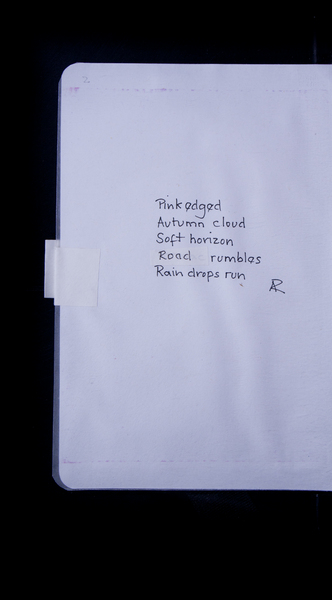 2
Pink edged
Autumn cloud
Soft horizon
Road rumbles
Rain drops run
AR